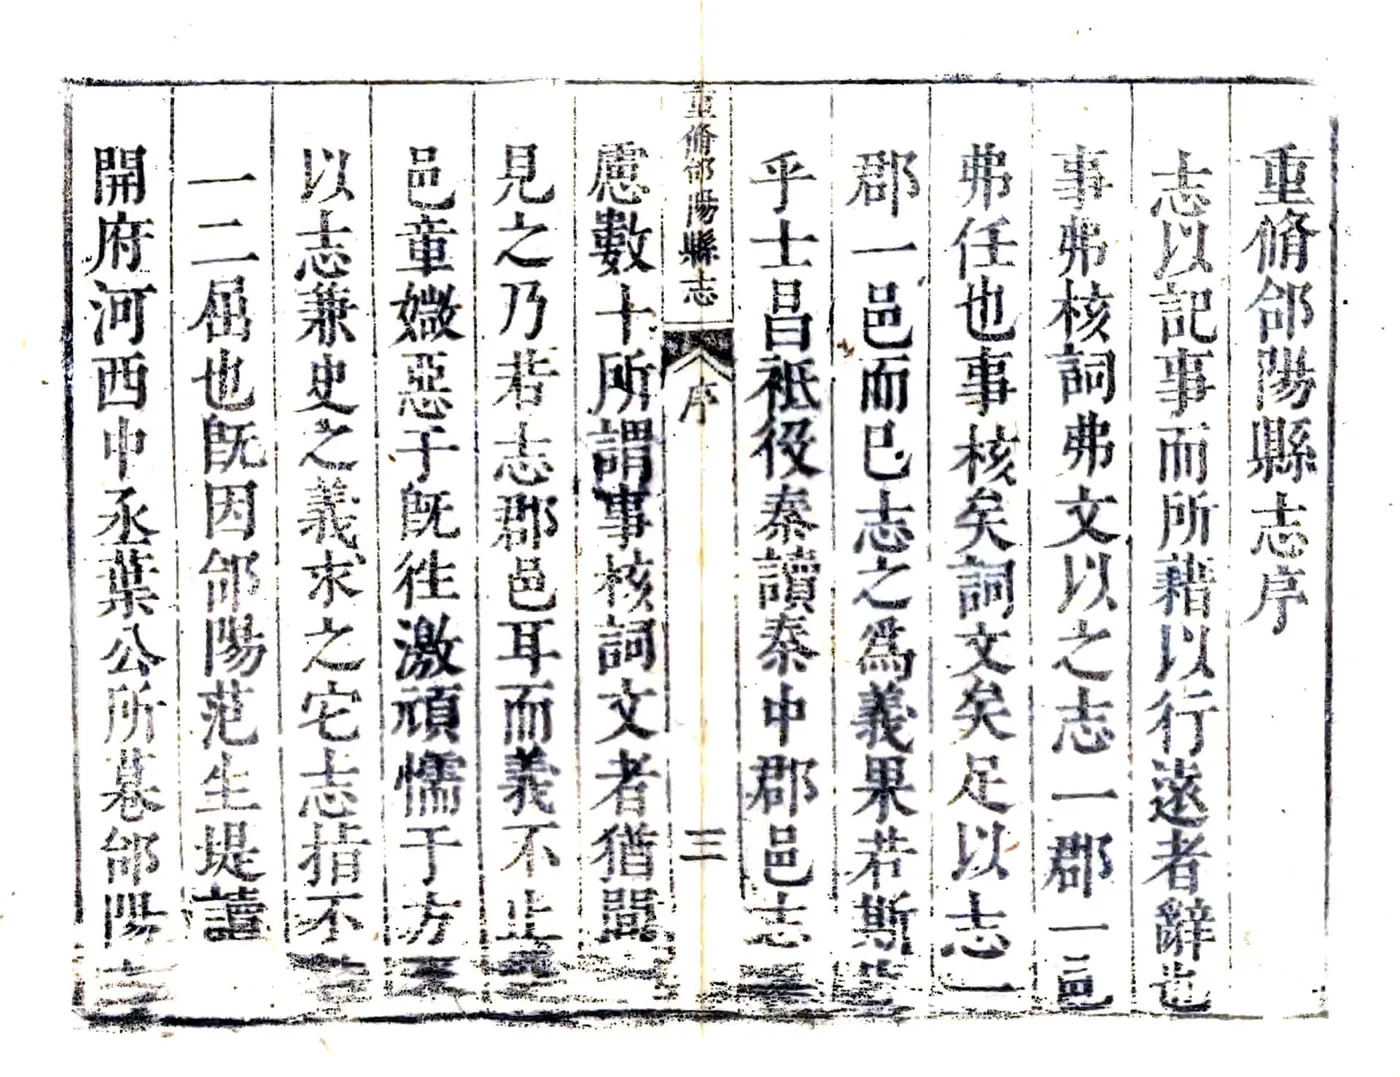 重脩郃陽縣志序
志以記事而所藉以行遠者辭也
事弗核詞弗文以之志一郡一邑
弗任也事核矣詞文矣足以志一
郡一邑而已志之爲義果若斯
乎士昌祗役秦讀秦中郡邑志
重脩郃陽縣志
序
三
慮數十所謂事核詞文者猶間
見之乃若志郡邑耳而義不止
邑童媺惡于旣徃激頑懦于方
以志兼史之義求之它志指不
一二屈也旣因郃陽范生堤讀
開府河西中丞葉公所郃陽